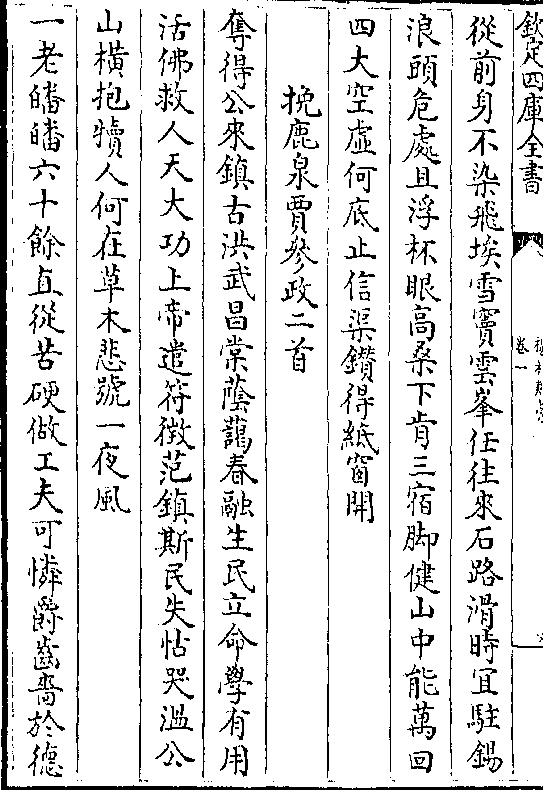 欽定四庫全書
卷一
從前身不染飛埃雪竇雲峯任往來石路滑時宜駐錫
浪頭危處且浮杯眼高桑下肯三宿脚健山中能萬回
四大空虛何底止信渠鑽得紙窗開
挽鹿泉賈參政二首
奪得公來鎮古洪武昌棠蔭藹春融生民立命學有用
活佛救人天大功上帝遣符徴范鎮斯民失怙哭溫公
山橫抱犢人何在草木悲號一夜風
一老皤皤六十餘直從苦硬做工夫可憐爵齒嗇於德